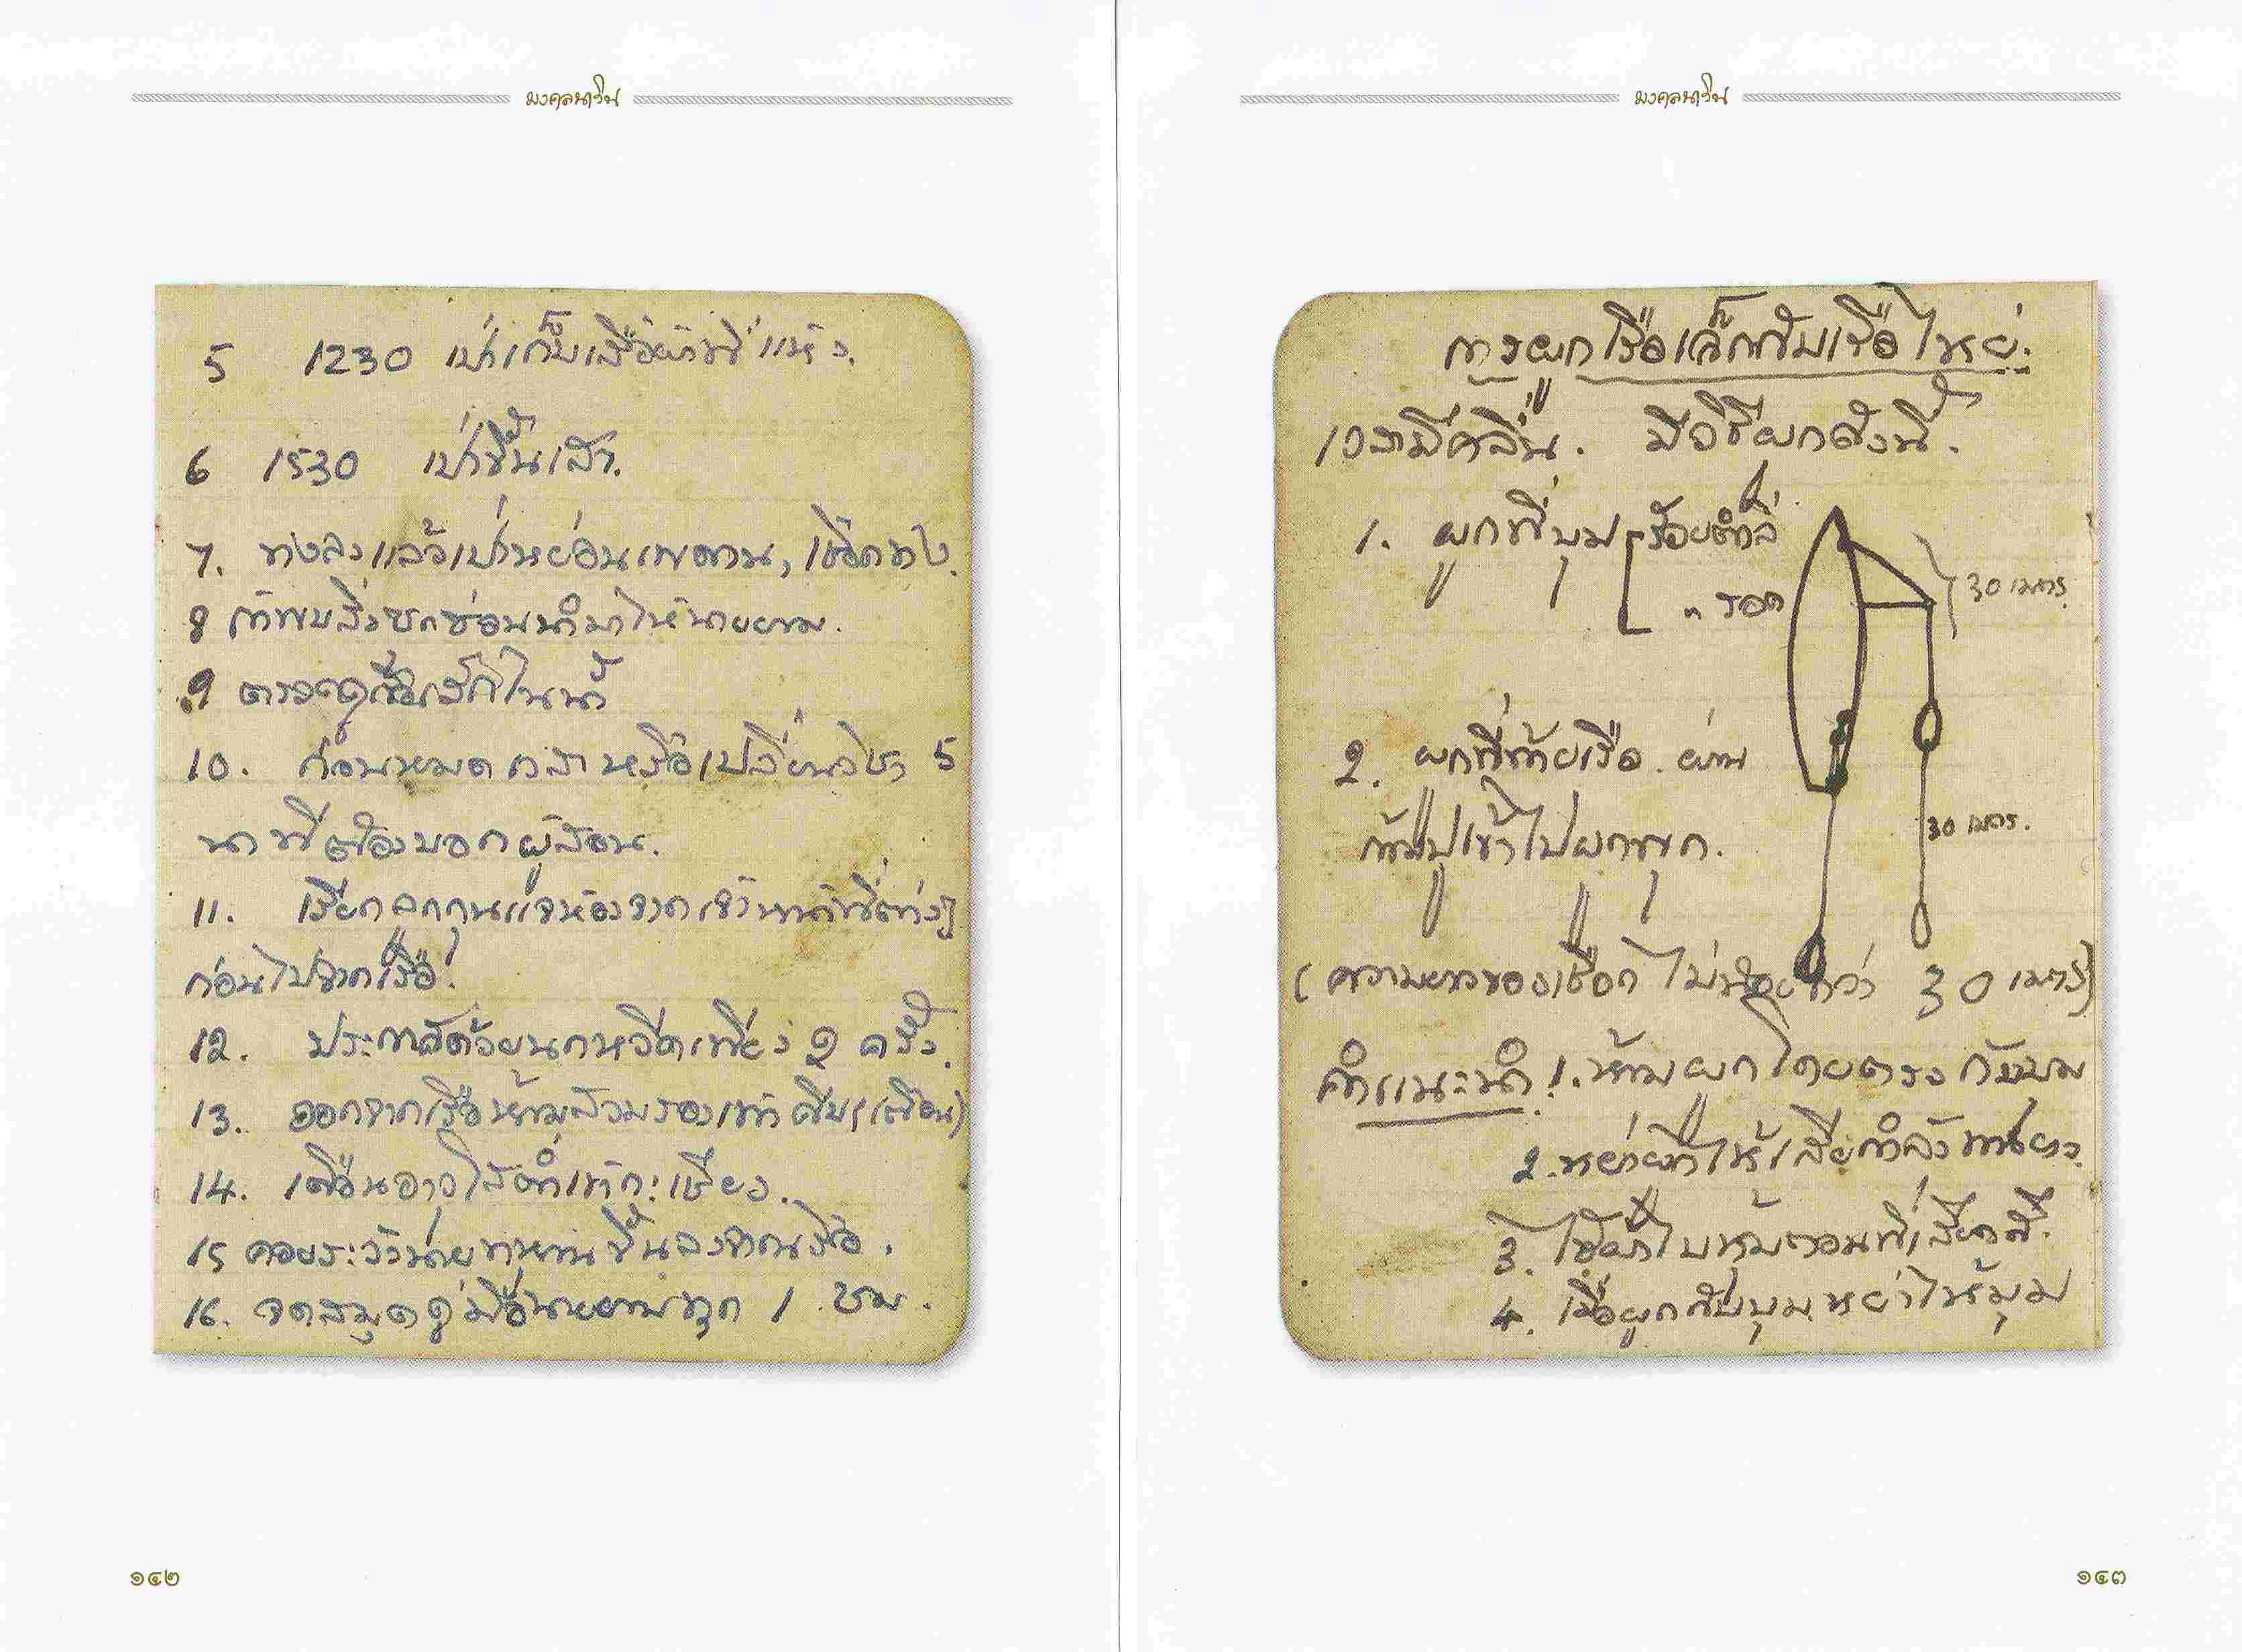 มงคลนาวิน
5 1230 เป่าเก็บเสื้อผ้าที่แห้ง.
6 1530 เป่าขึ้นเสา.
7. ธงลงแล้วเป่าหย่อนเพดาน, เชือกธง.
8 ถ้าพบสิ่งซุกซ่อนนำมาให้นายยาม.
9 ตรวจดูเรือเล็กในน้ำ
10. ก่อนหมดเวลาหรือเปลี่ยนวิชา 5
นาทีต้องบอกผู้สอน.
11. เรียกลูกกุนแจห้องจากเจ้าหน้าที่ต่างๆ
ก่อนไปจากเรือ.
12. ประกาศด้วยนกหวีดเพียง 2 ครั้ง.
13. ออกจากเรือห้ามสวมรองเท้า
14. เตือนอาวุโสต่ำ
15 คอยระวังนายทหารขึ้นลงจากเรือ.
16. จดสมุดคู่มือนายยามทุก 1 ชม.
๑๔๒
มงคลนาวิน
การผูกเรือเล็กกับเรือใหญ่.
เวลามีคลื่น. มีวิธีผูกดังนี้.
1. ผูกที่บูม ร้อยตำลึ่
" รอด
30 เมตร.
2. ผูกที่ท้ายเรือ. ผ่าน
กันปูเข้าไปผูกพุก.
30 เมตร.
(ความยาวของเชือกไม่น้อยกว่า 30 เมตร)
คำแนะนำ! 1. ห้ามผูกโดยตรงกับบูม
2. หย่าผูกให้เสียกำลัง
3. ใช้ผ้าใบหุ้มตอนที่เสียดสี.
4. เมื่อผูกกับบูมหย่าให้มุม
๑๔๓